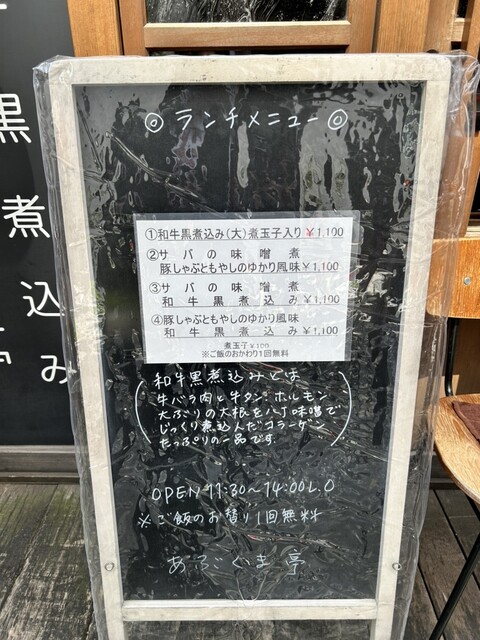 ◎ ランチメニュー ◎
①和牛黒煮込み(大)煮玉子入り ¥1,100
②サバの味噌煮
豚しゃぶともやしのゆかり風味 ¥1,100
③サバの味噌煮
和牛黒煮込み ¥1,100
④豚しゃぶともやしのゆかり風味
和牛黒煮込み ¥1,100
煮玉子 ¥100
※ご飯のおかわり1回無料
和牛黒煮込みとは
牛バラ肉と牛タン、ホルモン
大ぶりの大根を八丁味噌で
じっくり煮込んだコラーゲン
たっぷりの一品です。
OPEN 11:30~14:00L.O
※ご飯のお替り1回無料
あぶくま亭
黒
煮
込
み